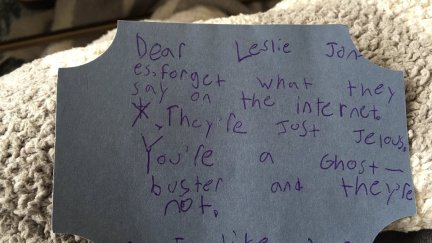 Dear Leslie Jon-
es, forget what they
say on the internet.
* They're just jelous.
You're a Ghost-
buster and they're
not.